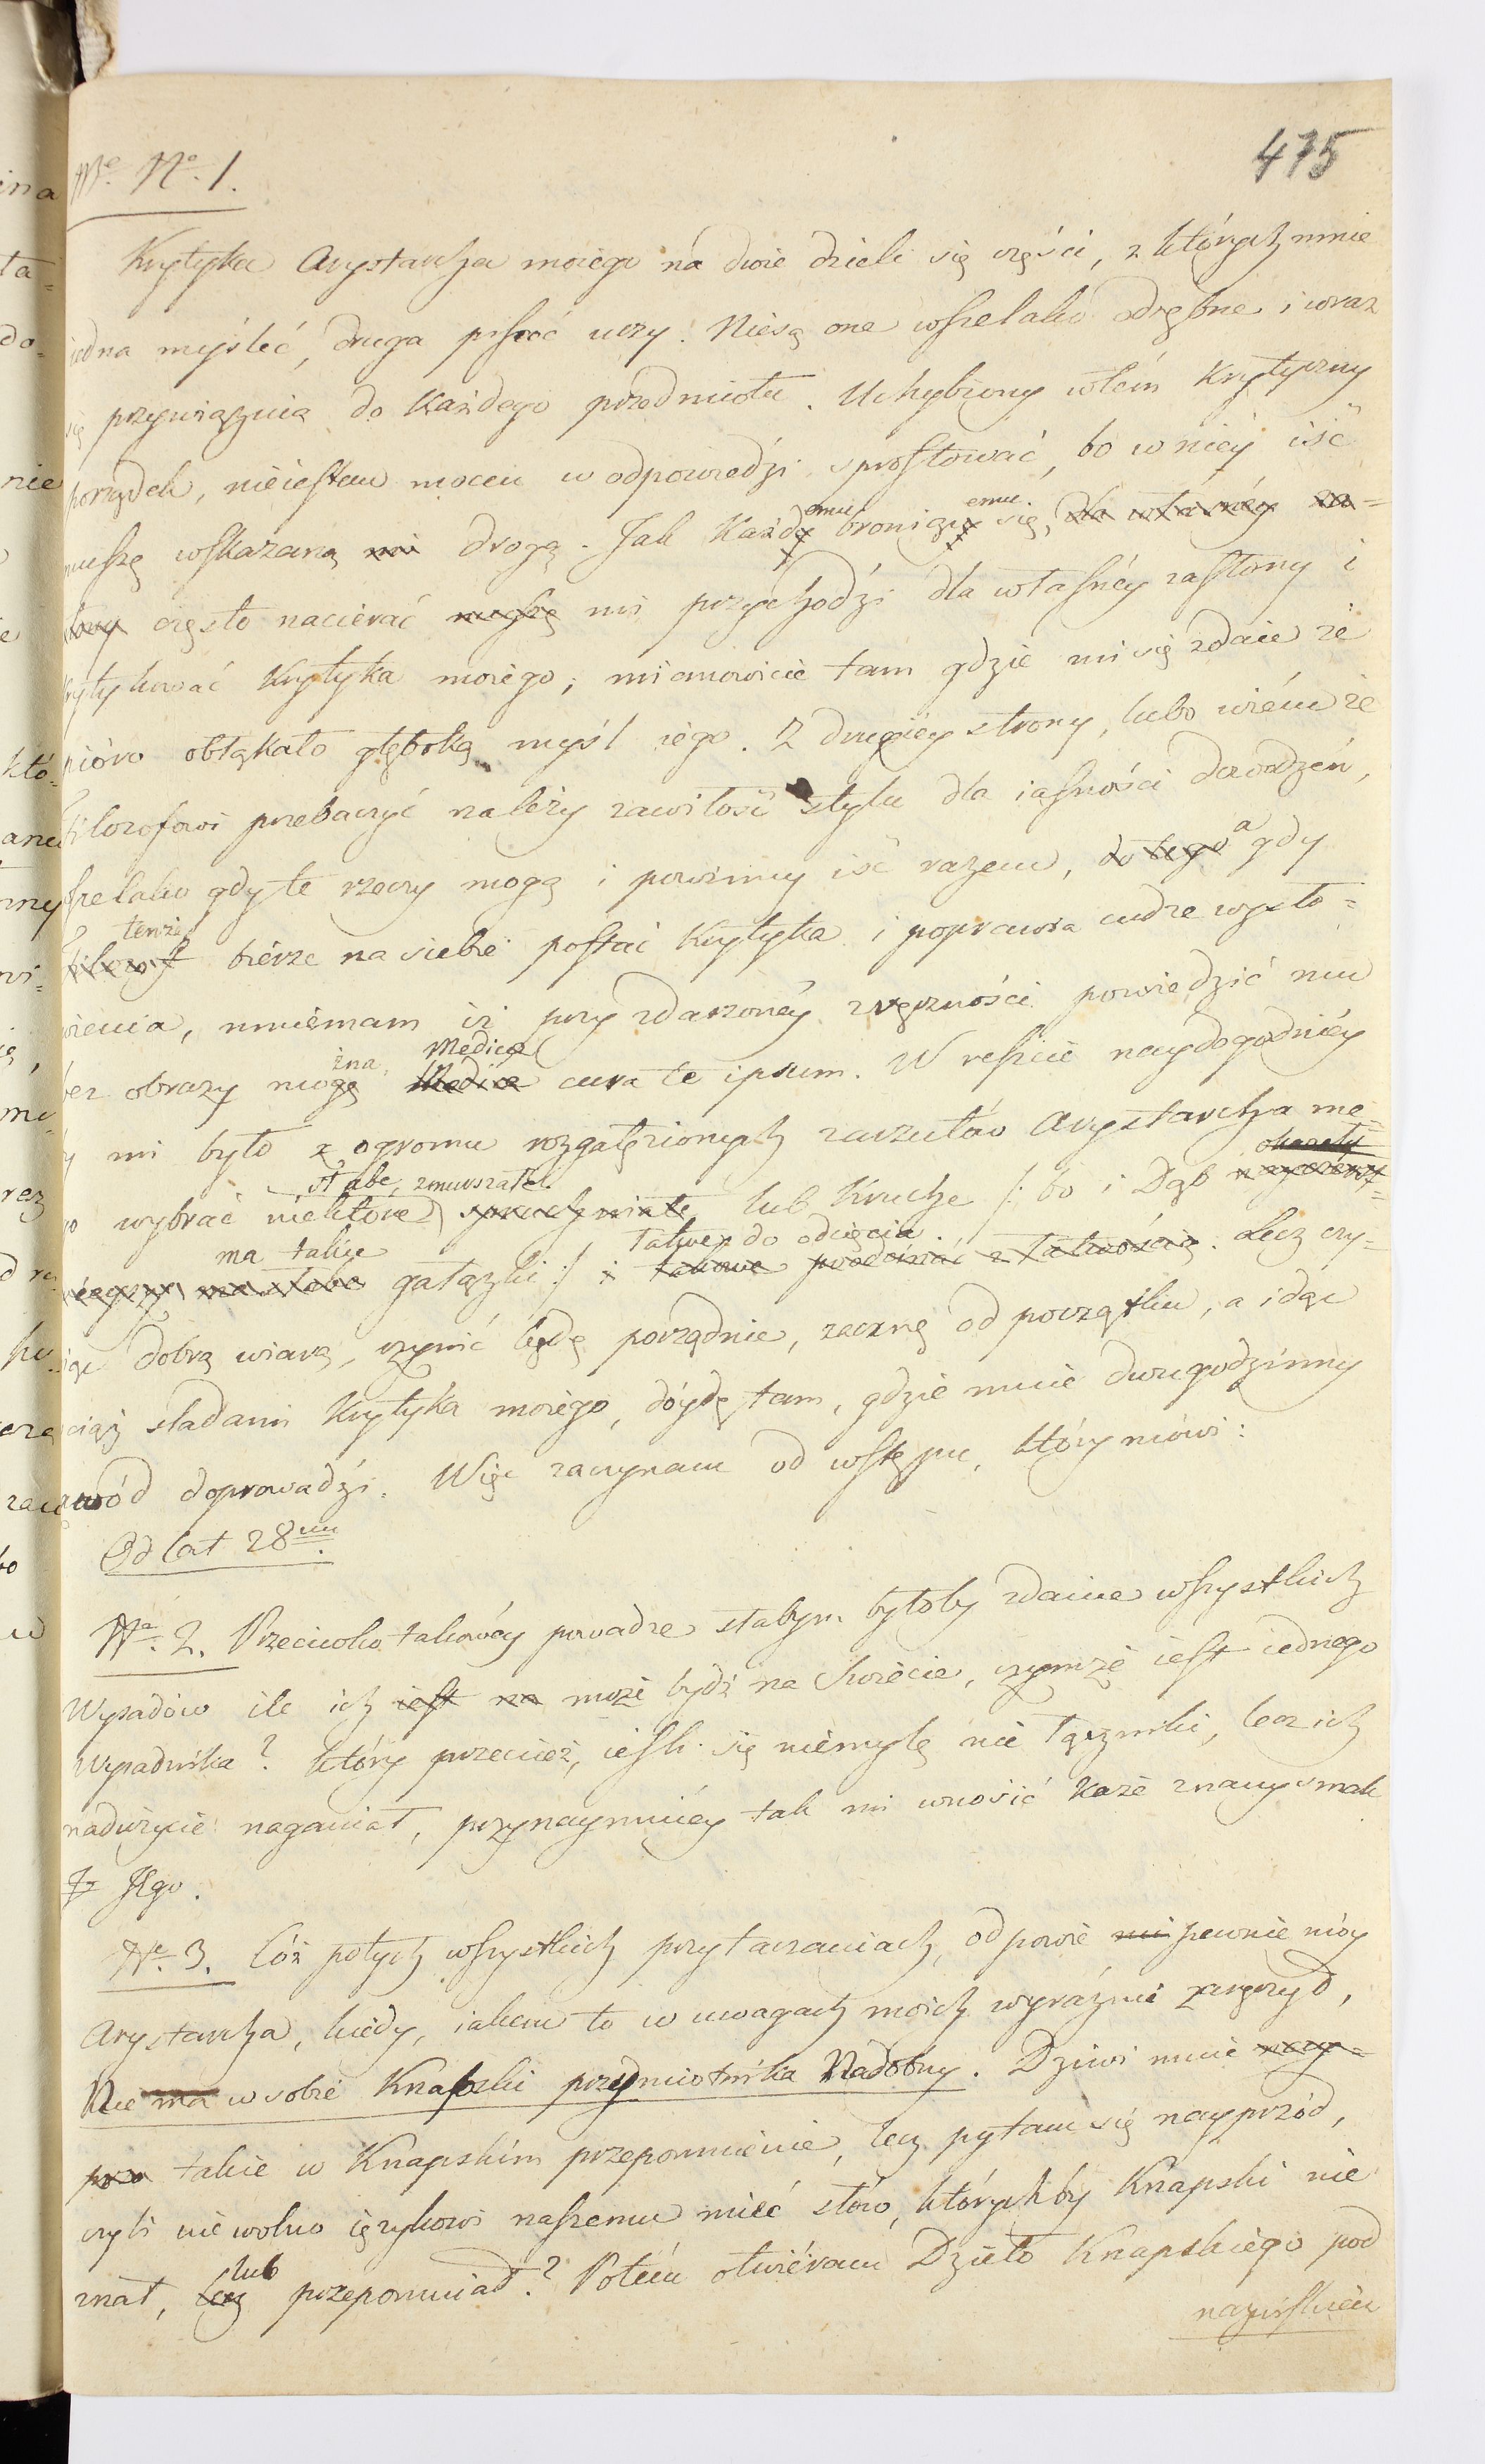 475
Nº 1.
Krytyka Arystarcha moiego na dwie dzieli się części, z których mnie
iedna myśleć, druga pisać uczy. Niesą one wszelako odrębne i wraz
się przywiązuią do każdego przedmiotu. Uchybiony wtém krytyczny
porządek, nieiestem mocen w odpowiedzi sprostować, bo w niéy iść
muszę wskazaną mi drogą. Jak Każdyemu broniącyemu się, dla własnéy za=
słony często nacierać muszę mi przychodzi dla własnéy zasłony i
krytykować Krytyka moiego, mianowicie tam gdzie mi się zdaie że
pióro obłąkało głęboką myśl iego. Z drugiéy strony, lubo wiém że
filozofowi przebaczyć należy zawiłość stylu dla iasności dowodzeń,
wszelako gdy te rzeczy mogą i powinny iść razem, do tego a gdy
filozof tenże bierze na siebie postać Krytyka i poprawia cudze wysło=
wienia, mniemam iż przy zdarzonéy zręczności powiedzić mu
bez obrazy mogę żna, Medice Medice cura te ipsum. W reszcie naydogodniéy
by mi było z ogromu rozgałęzionych zarzutów Arystarcha me=
go wybrać niektóre słabe, zmurszałe spruchniałe lub kruche /: bo i Dąb okazały
ma takie gałązki :/ i łatwe do odcięcia. Lecz czy=
niąc dobrą wiarą, czynić będę porządnie, zacznę od początku, a idąc
wciąż śladami Krytyka moiego, dóydę tam, gdzie mnie dwugodzinny
zawód doprowadzi. Więc zaczynam od wstępu, który mówi:
Od lat 28miu.
Nº 2. Przeciwko takowéy powadze słabym byłoby zdanie wszystkich
Wysadów ile ich iest na może bydź na Świecie, czymże iest iednego
Wysadnika? który przecież, iesli się niemylę nie łączniki, lecz ich
nadużycie naganiał, przynaymniéy tak mi wnosić każe znany smak
Jgo.
Nº 3. Cóż potych wszystkich przytaczaniach, odpowie mi pewnie móy
Arystarcha, kiedy, iakem to w uwagach moich wyraźnie zaręczył,
Nie ma w sobie Knapski przymiotnika Nadobny. Dziwi mnie nay=
prz takie w Knapskim przepomnienie, lecz pytam się nayprzód,
czyli niewolno ięzykowi naszemu mieć słów, którychby Knapski nie
znał, lecz lub przepomniał? Potém otwiéram Dzieło Knapskiego pod
nazwiskiem